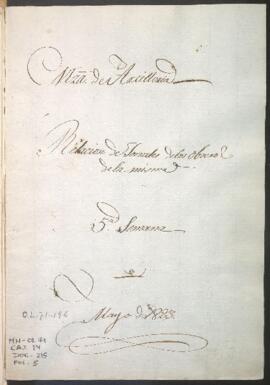 Mza. de Artillería
Relacion de Jornales de los Obreros
de la misma
5a. Semana
Mayo de 1823
O.L. 71-196
MH-OL 71
CAJ. 14
DOC. 215
FOL. 5